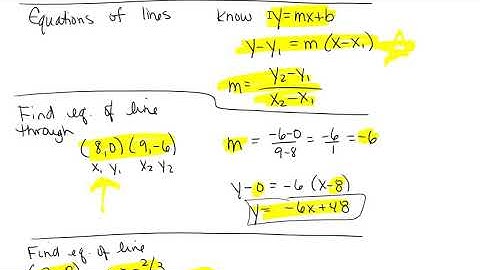 Equations of lines
know y=mx+b
y-y₁ = m (x-x₁)
m = y₂-y₁ / x₂-x₁
Find eq. of line
through
(8,0) (9,-6)
x₁ y₁ x₂ y₂
m = -6-0 / 9-8 = -6 / 1 = -6
y-0 = -6 (x-8)
y = -6x+48
Find eq. of line